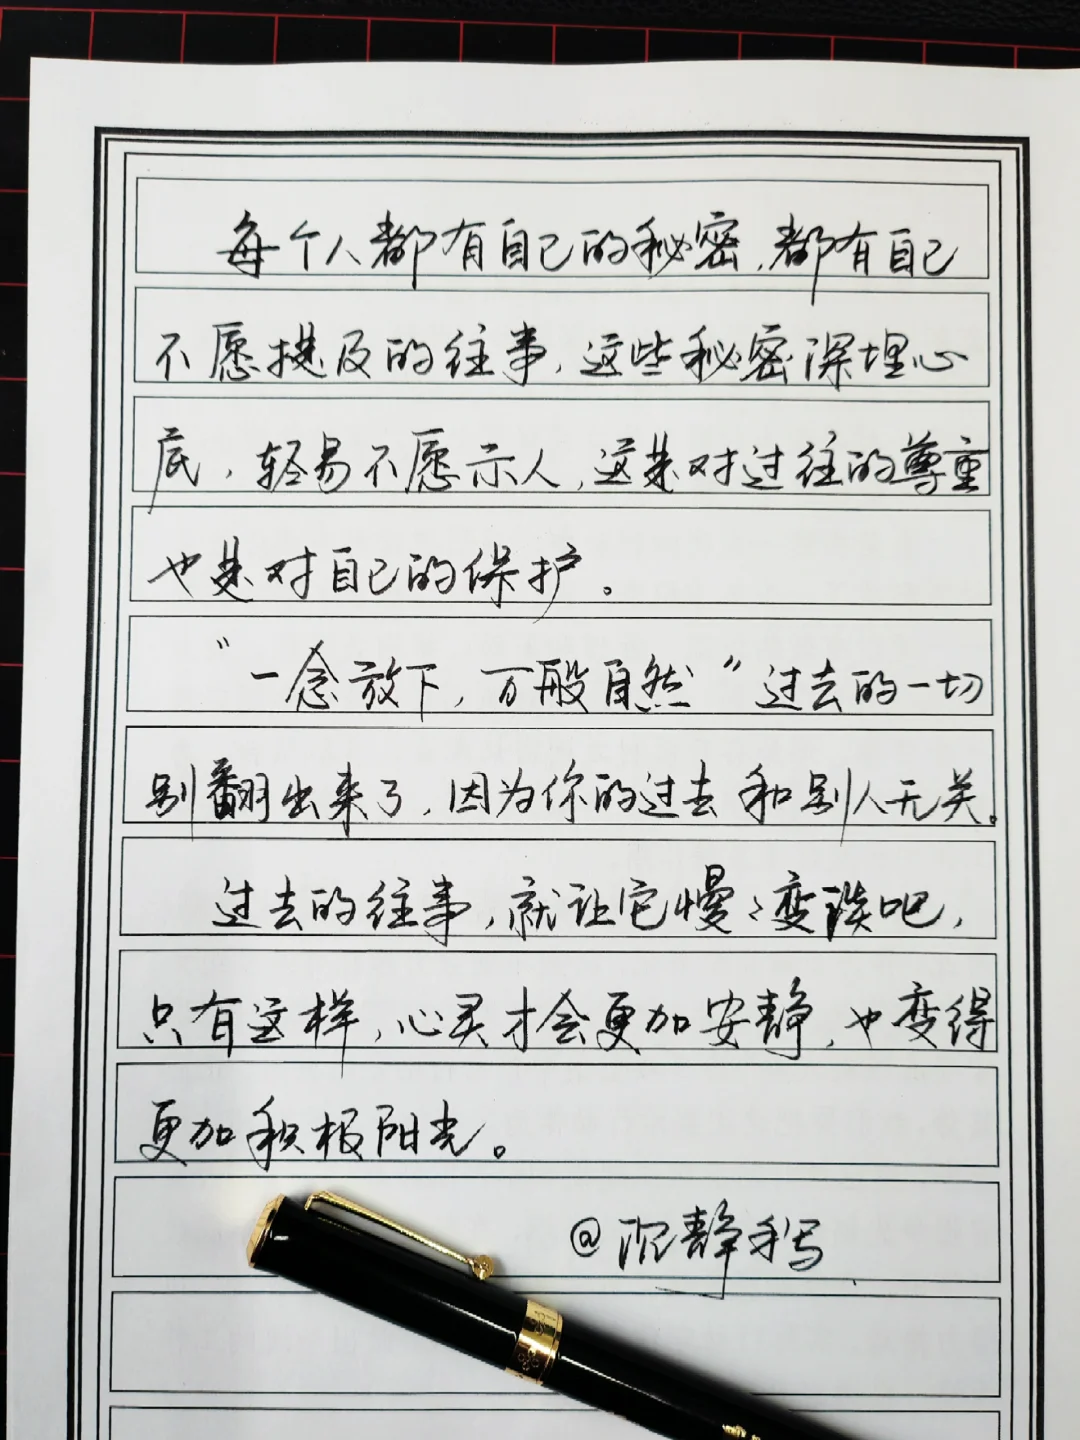 每个人都有自己的秘密,都有自己
不愿提及的往事,这些秘密深埋心
底,轻易不愿示人,这是对过往的尊重
也是对自己的保护。
“一念放下,万般自然”过去的一切
别翻出来了,因为你的过去和别人无关。
过去的往事,就让它慢々变淡吧,
只有这样,心灵才会更加安静,也变得
更加积极阳光。
@沉静手写